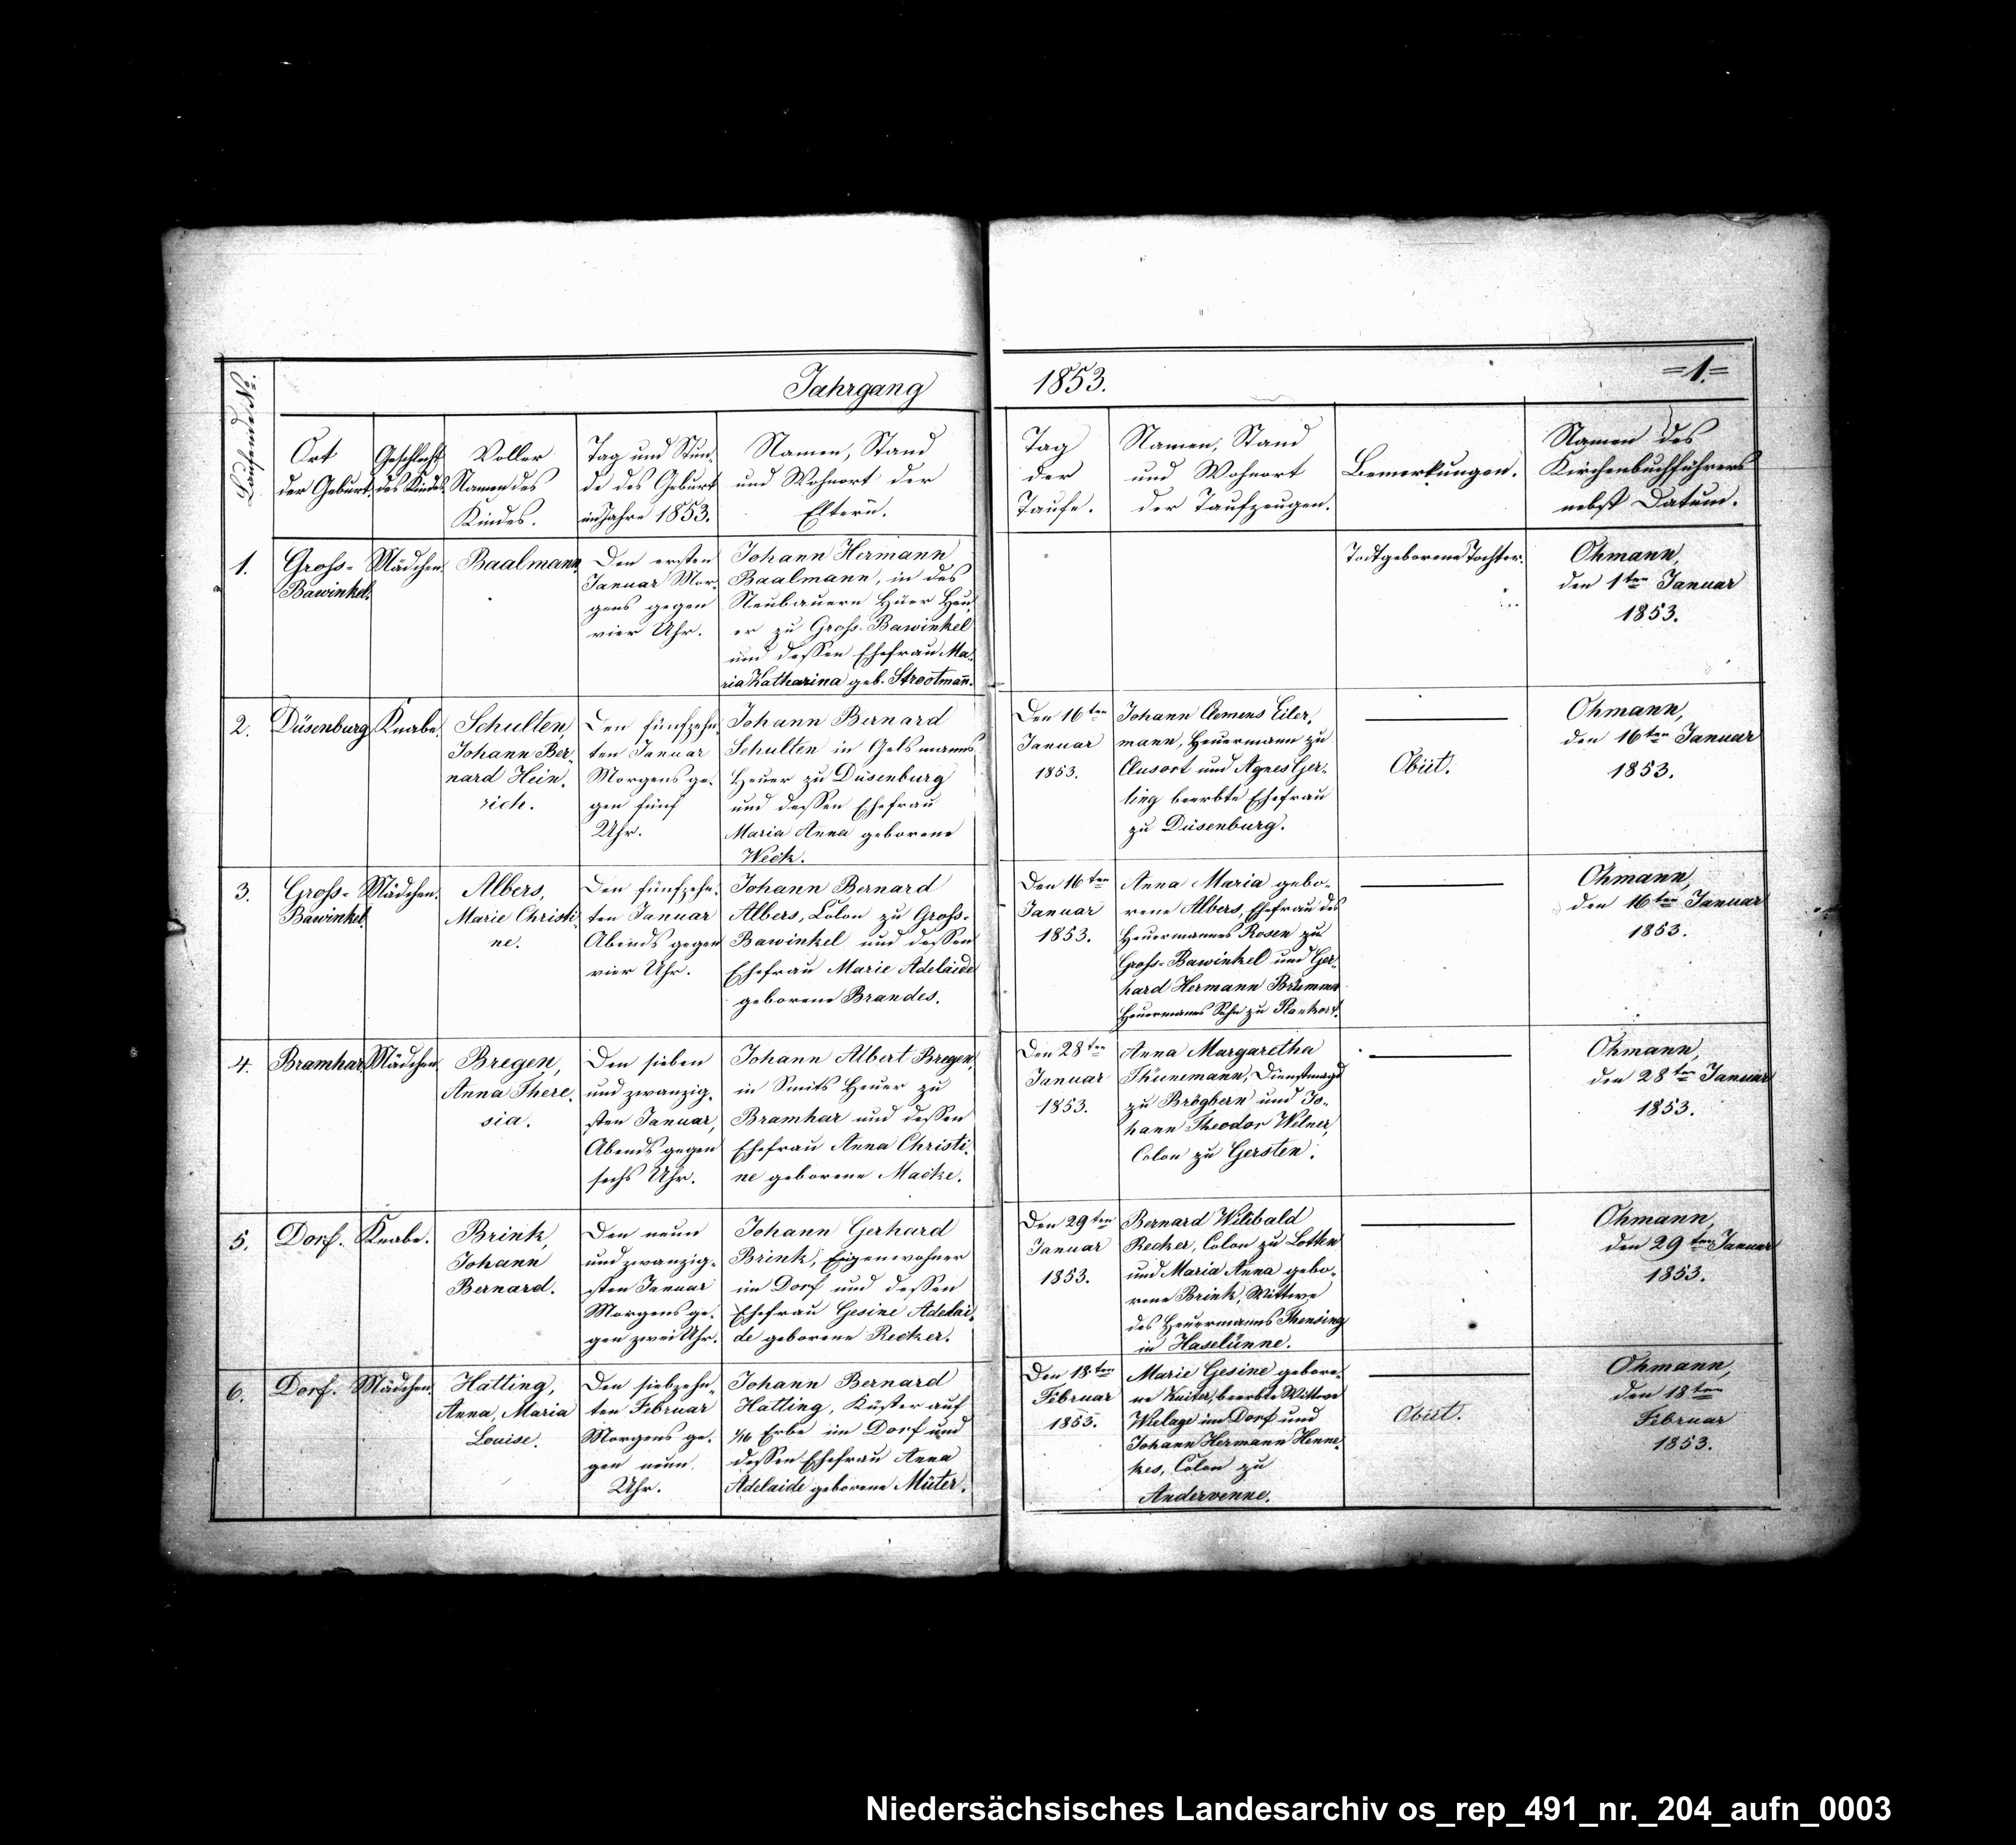 Jahrgang 1853.
=1.=
Laufende No.
Ort
der Geburt.
Geschlecht
des Kindes.
Voller
Namen des
Kindes.
Tag und Stun-
de des Geburt
im Jahre 1853.
Namen, Stand
und Wohnort der
Eltern.
Tag
der
Taufe.
Namen, Stand
und Wohnort
der Taufzeugen.
Bemerkungen.
Namen des
Kirchenbuchführers
nebst Datum.
1.
Groß-
Bawinkel.
Mädchen.
Baalmann
Den ersten
Januar Mor-
gens gegen
vier Uhr.
Johann Hermann
Baalmann, in des
Neubauern Hüer Heu-
er zu Groß-Bawinkel
und dessen Ehefrau Ma-
ria Katharina geb. Strootmann.
Todtgeborene Tochter.
Ohmann,
den 1ten Januar
1853.
2.
Düsenburg
Knabe.
Schulten,
Johann Ber-
nard Hein-
rich.
Den fünfzehn-
ten Januar
Morgens ge-
gen fünf
Uhr.
Johann Bernard
Schulten in Gelsmanns
Heuer zu Düsenburg
und dessen Ehefrau
Maria Anna geborene
Weck.
Den 16ten
Januar
1853.
Johann Clemens Eiler-
mann, Heuermann zu
Clusort und Agnes Ger-
ling beerbte Ehefrau
zu Düsenburg.
Obiit.
Ohmann,
den 16ten Januar
1853.
3.
Groß-
Bawinkel.
Mädchen.
Albers,
Marie Christi-
ne.
Den fünfzehn-
ten Januar
Abends gegen
vier Uhr.
Johann Bernard
Albers, Colon zu Groß-
Bawinkel und dessen
Ehefrau Marie Adelaide
geborene Brandes.
Den 16ten
Januar
1853.
Anna Maria gebo-
rene Albers, Ehefrau des
Heuermannes Rosen zu
Groß-Bawinkel und Ger-
hard Hermann Brümmer
Heuermanns Sohn zu Plankort.
Ohmann,
den 16ten Januar
1853.
4.
Bramhar
Mädchen
Bregen,
Anna There-
sia.
Den sieben
und zwanzig-
sten Januar,
Abends gegen
sechs Uhr.
Johann Albert Bregen,
in Smits Heuer zu
Bramhar und dessen
Ehefrau Anna Christi-
ne geborene Macke.
Den 28ten
Januar
1853.
Anna Margaretha
Thünemann, Dienstmagd
zu Brögbern und Jo-
hann Theodor Welner,
Colon zu Gersten.
Ohmann,
den 28ten Januar
1853.
5.
Dorf.
Knabe.
Brink,
Johann
Bernard.
Den neun
und zwanzig-
sten Januar
Morgens ge-
gen zwei Uhr.
Johann Gerhard
Brink, Eigenwohner
im Dorf und dessen
Ehefrau Gesine Adelai-
de geborene Recker.
Den 29ten
Januar
1853.
Bernard Wilibald
Recker, Colon zu Lotten
und Maria Anna gebo-
rene Brink, Wittwe
des Heuermanns Thensing
in Haselünne.
Ohmann,
den 29ten Januar
1853.
6.
Dorf.
Mädchen.
Hatting,
Anna, Maria
Louise.
Den siebzehn-
ten Februar
Morgens ge-
gen neun
Uhr.
Johann Bernard
Hatting, Küster auf
1/16 Erbe im Dorf und
dessen Ehefrau Anna
Adelaide geborene Müter.
Den 18ten
Februar
1853.
Marie Gesine gebore-
ne Kuiter, beerbte Wittwe
Wielage im Dorf und
Johann Hermann Henne-
kes, Colon zu
Andervenne.
Obiit.
Ohmann,
den 18ten
Februar
1853.
Niedersächsisches Landesarchiv os_rep_491_nr._204_aufn_0003